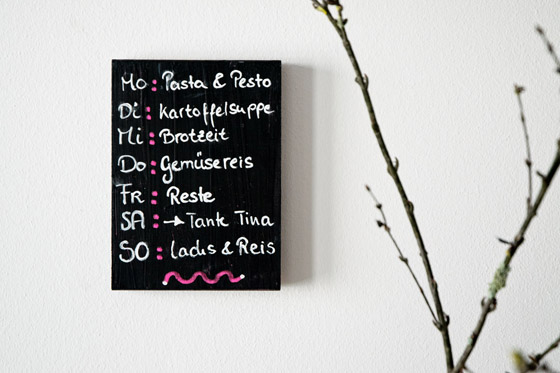 Mo: Pasta & Pesto
Di: Kartoffelsuppe
Mi: Brotzeit
Do: Gemüsereis
FR: Reste
SA: → Tante Tina
SO: Lachs & Reis